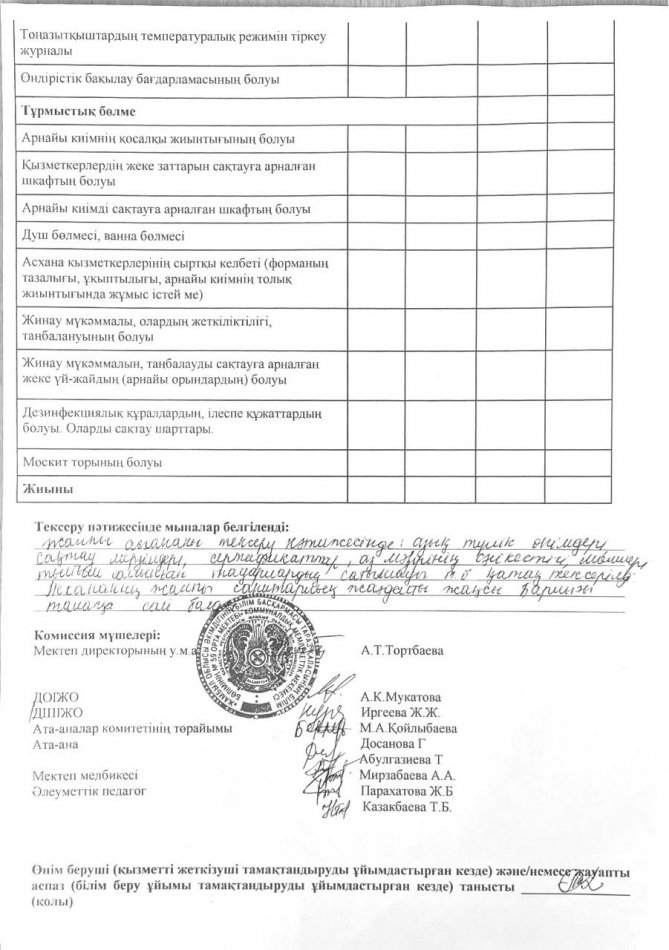 Тоңазытқыштардың температуралық режимін тіркеу
журналы
Өндірістік бақылау бағдарламасының болуы
Тұрмыстық бөлме
Арнайы киімнің қосалқы жиынтығының болуы
Қызметкерлердің жеке заттарын сақтауға арналған
шкафтың болуы
Арнайы киімді сақтауға арналған шкафтың болуы
Душ бөлмесі, ванна бөлмесі
Асхана қызметкерлерінің сыртқы келбеті (форманың
тазалығы, ұқыптылығы, арнайы киімнің толық
жиынтығында жұмыс істей ме)
Жинау мүкәммалы, олардың жеткіліктілігі,
таңбалануының болуы
Жинау мүкәммалын, таңбалауды сақтауға арналған
жеке үй-жайдың (арнайы орындардың) болуы
Дезинфекциялық құралдардың, ілеспе құжаттардың
болуы. Оларды сақтау шарттары.
Москит торының болуы
Жиыны
Тексеру нәтижесінде мыналар белгіленді:
жалпы асхананы тексеру нәтижесінде: азық түлік өнімдері
сақтау мерзімдері, сертификаттар, ас мәзірінің сәйкестігі
тыйым салынған тағамдардың сатылмауы т.б қатаң тексерілді
Асхананың жалпы санитарлық жағдайы жақсы Барлығы
талапқа сай
Комиссия мүшелері:
Мектеп директорының у.м.а А.Т.Тортбаева
ДОІЖО А.К.Мукатова
ДШІЖО Иргеева Ж.Ж.
Ата-аналар комитетінің төрайымы М.А.Қойлыбаева
Ата-ана Досанова Г
Абулгазиева Т
Мектеп мелбикесі Мирзабаева А.А.
Әлеуметтік педагог Парахатова Ж.Б
Казакбаева Т.Б.
Өнім беруші (қызметті жеткізуші тамақтандыруды ұйымдастырған кезде) және/немесе жауапты
аспаз (білім беру ұйымы тамақтандыруды ұйымдастырған кезде) танысты
(қолы)